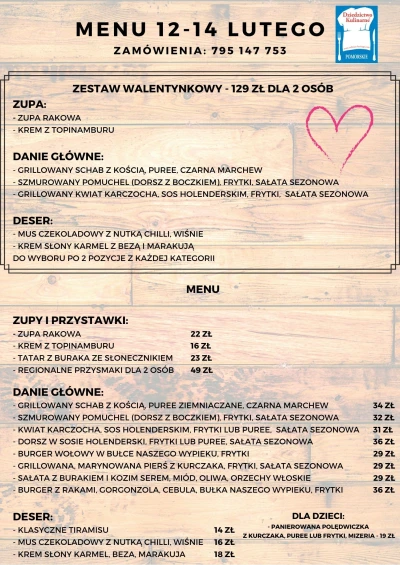 MENU 12-14 LUTEGO
ZAMÓWIENIA: 795 147 753
Dziedzictwo
Kulinarne
POMORSKIE
ZESTAW WALENTYNKOWY - 129 ZŁ DLA 2 OSÓB
ZUPA:
- ZUPA RAKOWA
- KREM Z TOPINAMBURU
DANIE GŁÓWNE:
- GRILLOWANY SCHAB Z KOŚCIĄ, PUREE, CZARNA MARCHEW
- SZMUROWANY POMUCHEL (DORSZ Z BOCZKIEM), FRYTKI, SAŁATA SEZONOWA
- GRILLOWANY KWIAT KARCZOCHA, SOS HOLENDERSKIM, FRYTKI, SAŁATA SEZONOWA
DESER:
- MUS CZEKOLADOWY Z NUTKĄ CHILLI, WIŚNIE
- KREM SŁONY KARMEL Z BEZĄ I MARAKUJĄ
DO WYBORU PO 2 POZYCJE Z KAŻDEJ KATEGORII
MENU
ZUPY I PRZYSTAWKI:
- ZUPA RAKOWA 22 ZŁ
- KREM Z TOPINAMBURU 16 ZŁ
- TATAR Z BURAKA ZE SŁONECZNIKIEM 23 ZŁ
- REGIONALNE PRZYSMAKI DLA 2 OSÓB 49 ZŁ
DANIE GŁÓWNE:
- GRILLOWANY SCHAB Z KOŚCIĄ, PUREE ZIEMNIACZANE, CZARNA MARCHEW 34 ZŁ
- SZMUROWANY POMUCHEL (DORSZ Z BOCZKIEM), FRYTKI, SAŁATA SEZONOWA 32 ZŁ
- KWIAT KARCZOCHA, SOS HOLENDERSKIM, FRYTKI LUB PUREE, SAŁATA SEZONOWA 31 ZŁ
- DORSZ W SOSIE HOLENDERSKI, FRYTKI LUB PUREE, SAŁATA SEZONOWA 36 ZŁ
- BURGER WOŁOWY W BUŁCE NASZEGO WYPIEKU, FRYTKI 29 ZŁ
- GRILLOWANA, MARYNOWANA PIERŚ Z KURCZAKA, FRYTKI, SAŁATA SEZONOWA 29 ZŁ
- SAŁATA Z BURAKIEM I KOZIM SEREM, MIÓD, OLIWA, ORZECHY WŁOSKIE 29 ZŁ
- BURGER Z RAKAMI, GORGONZOLA, CEBULA, BUŁKA NASZEGO WYPIEKU, FRYTKI 36 ZŁ
DESER:
- KLASYCZNE TIRAMISU 14 ZŁ
- MUS CZEKOLADOWY Z NUTKĄ CHILLI, WIŚNIE 16 ZŁ
- KREM SŁONY KARMEL, BEZA, MARAKUJA 18 ZŁ
DLA DZIECI:
- PANIEROWANA POLĘDWICZKA
Z KURCZAKA, PUREE LUB FRYTKI, MIZERIA - 19 ZŁ